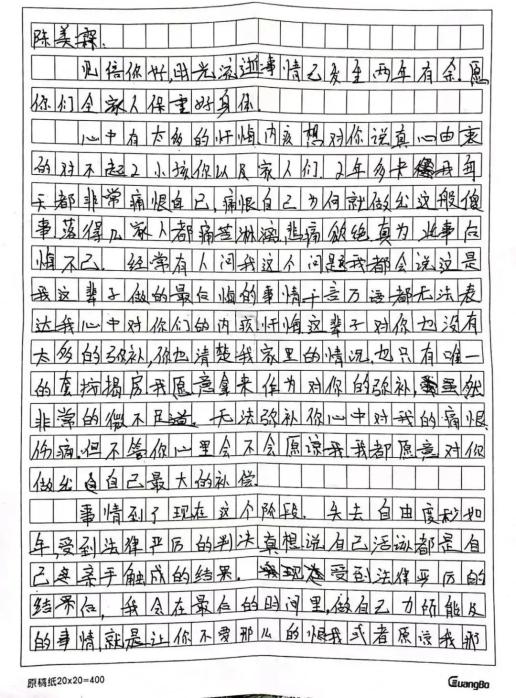 陈美霖.
见信你好,时光流逝事情已发至两年有余.愿
你们全家人保重好身体.
心中有太多的忏悔内疚想对你说真心由衷
的对不起2小孩你以及家人们.2年多来我每
天都非常痛恨自己,痛恨自己为何就做出这般傻
事落得几家人都痛苦淋漓悲痛欲绝真为此事后
悔不已.经常有人问我这个问题我都会说这是
我这辈子做的最后悔的事情千言万语都无法表
达我心中对你们的内疚忏悔这辈子对你也没有
太多的弥补,你也清楚我家里的情况,也只有唯一
的套按揭房我愿意拿来作为对你的弥补,虽然
非常的微不足道.无法弥补你心中对我的痛恨
伤痛.但不管你心里会不会愿谅我我都愿意对你
做出自己最大的补偿.
事情到了现在这个阶段.失去自由度秒如
年,受到法律严厉的判决真想说自己活该都是自
己亲手触成的结果.受到法律严厉的
结果后,我会在最后的时间里,做自己力所能及
的事情,就是让你不要那么的恨我或者原谅我那
原稿纸20x20=400
GuangBo